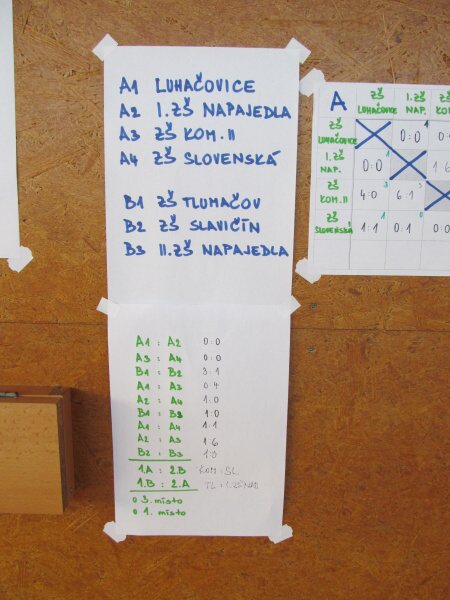 A1 LUHAČOVICE
A2 I.ZŠ NAPAJEDLA
A3 ZŠ KOM.II
A4 ZŠ SLOVENSKÁ
B1 ZŠ TLUMAČOV
B2 ZŠ SLAVIČÍN
B3 II.ZŠ NAPAJEDLA
A1 : A2 0:0
A3 : A4 0:0
B1 : B2 3:1
A1 : A3 0:4
A2 : A4 1:0
B1 : B3 1:0
A1 : A4 1:1
A2 : A3 1:6
B2 : B3
1.A : 2.B KOM : SL
1.B : 2.A
o 3. místo
o 1. místo
A ZŠ LUHAČOVICE I.ZŠ NAP. ZŠ
ZŠ LUHAČOVICE 0:0
I.ZŠ NAP. 0:0
ZŠ KOM.II 4:0 6:1
ZŠ SLOVENSKÁ 1:1 0:1 0:0